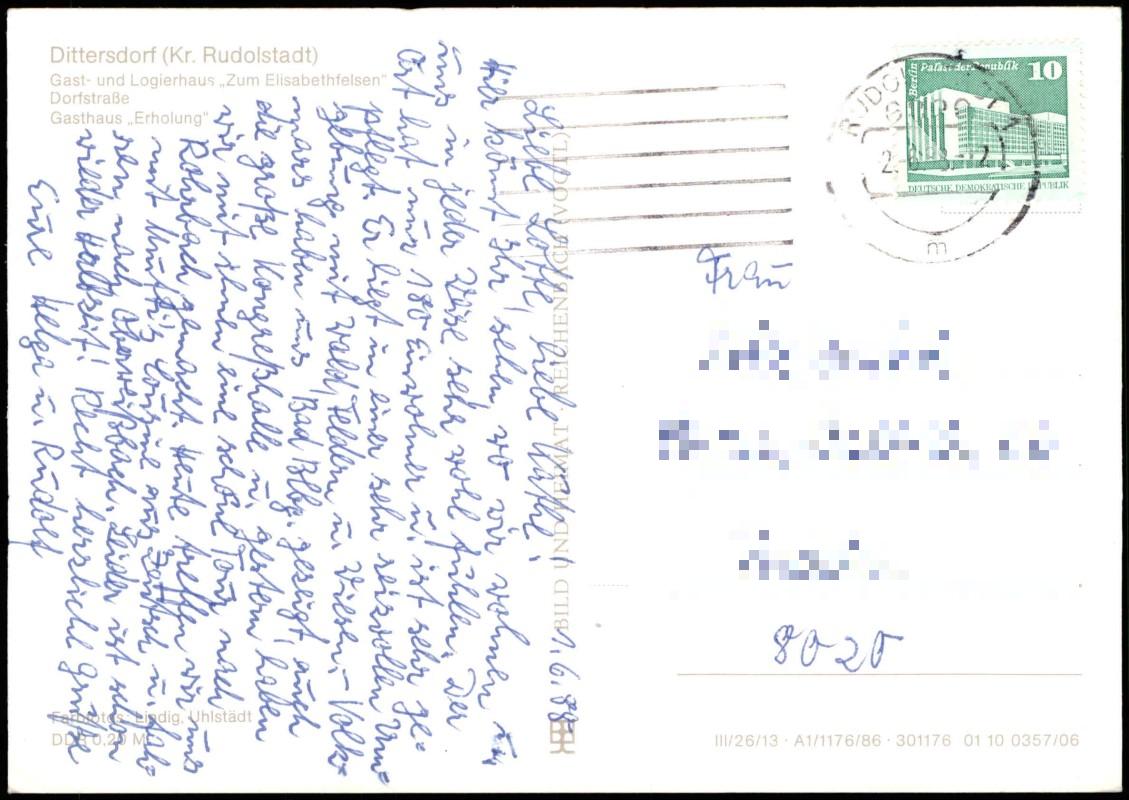 Dittersdorf (Kr. Rudolstadt)
Gast- und Logierhaus „Zum Elisabethfelsen"
Dorfstraße
Gasthaus „Erholung"
1. 6. 88
Liebe Lotte, liebe Käthe!
Hier könnt Ihr sehen wo wir wohnen u.
uns in jeder Weise sehr wohl fühlen. Der
Ort hat nur 180 Einwohner u. ist sehr ge-
pflegt. Er liegt in einer sehr reizvollen Um-
gebung mit Wald, Feldern u. Wiesen. –
haben uns Bad Blbg. gezeigt, auch
die große Kongreßhalle u. gestern haben
wir mit ihnen eine schöne Tour nach
Rohrbach gemacht. Heute treffen wir uns
mit Cousine aus u. fah-
ren nach Oberweißbach. Leider ist schon
wieder Halbzeit! Recht herzliche Grüße
Eure Helga u. Rudolf
BILD UND HEIMAT · REICHENBACH (VOGTL)
Farbfotos: Lindig, Uhlstädt
DDR 0,20 M
Berlin Palast der Republik 10
DEUTSCHE DEMOKRATISCHE REPUBLIK
m
Frau
8020
III/26/13 · A1/1176/86 · 301176 01 10 0357/06